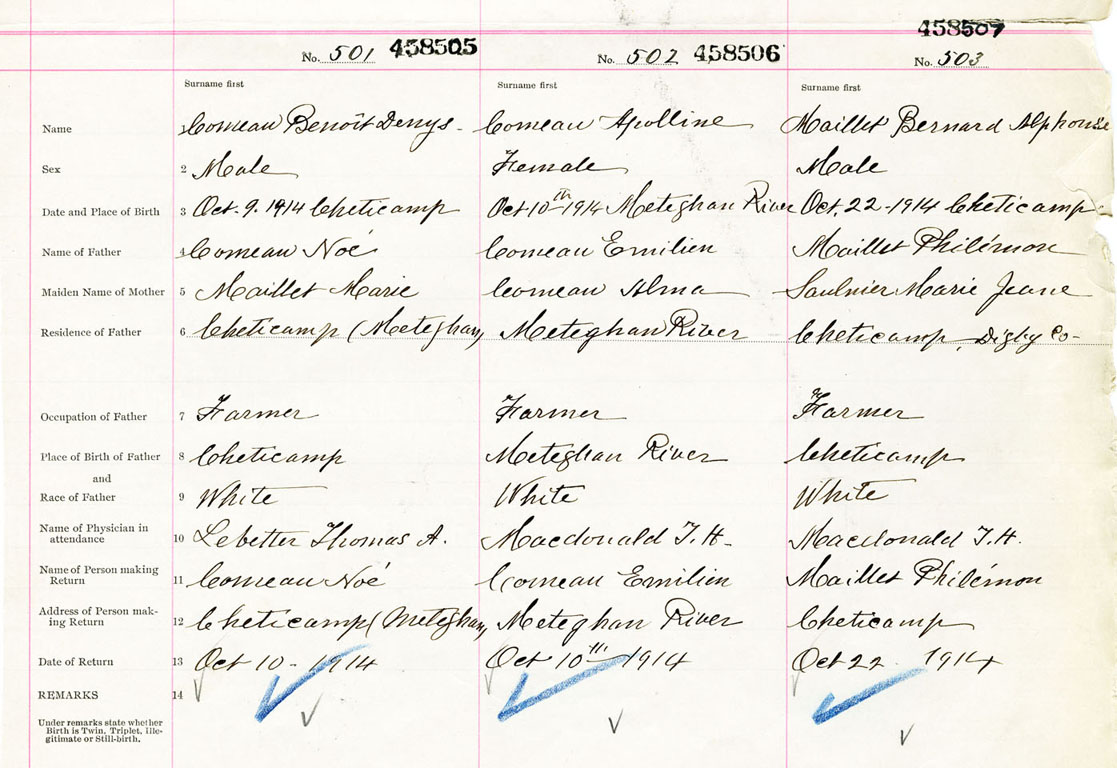 458507
No. 501 458505 No. 502 458506 No. 503
Surname first Surname first Surname first
Name 1 Comeau Benoît Denys- Comeau Apolline Maillet Bernard Alphonse
Sex 2 Male Female Male
Date and Place of Birth 3 Oct. 9. 1914 Cheticamp Oct 10th 1914 Meteghan River Oct. 22-1914 Cheticamp
Name of Father 4 Comeau Noé Comeau Emilien Maillet Philémon
Maiden Name of Mother 5 Maillet Marie Comeau Alma Saulnier Marie Jeane
Residence of Father 6 Cheticamp (Meteghan) Meteghan River Cheticamp, Digby Co-
Occupation of Father 7 Farmer Farmer Farmer
Place of Birth of Father 8 Cheticamp Meteghan River Cheticamp
and
Race of Father 9 White White White
Name of Physician in
attendance 10 Lebetter Thomas A. Macdonald T. H. Macdonald T. H.
Name of Person making
Return 11 Comeau Noé Comeau Emilien Maillet Philémon
Address of Person mak-
ing Return 12 Cheticamp (Meteghan) Meteghan River Cheticamp
Date of Return 13 Oct 10 - 1914 Oct 10th 1914 Oct 22 1914
REMARKS 14
Under remarks state whether
Birth is Twin, Triplet, Ille-
gitimate or Still-birth.